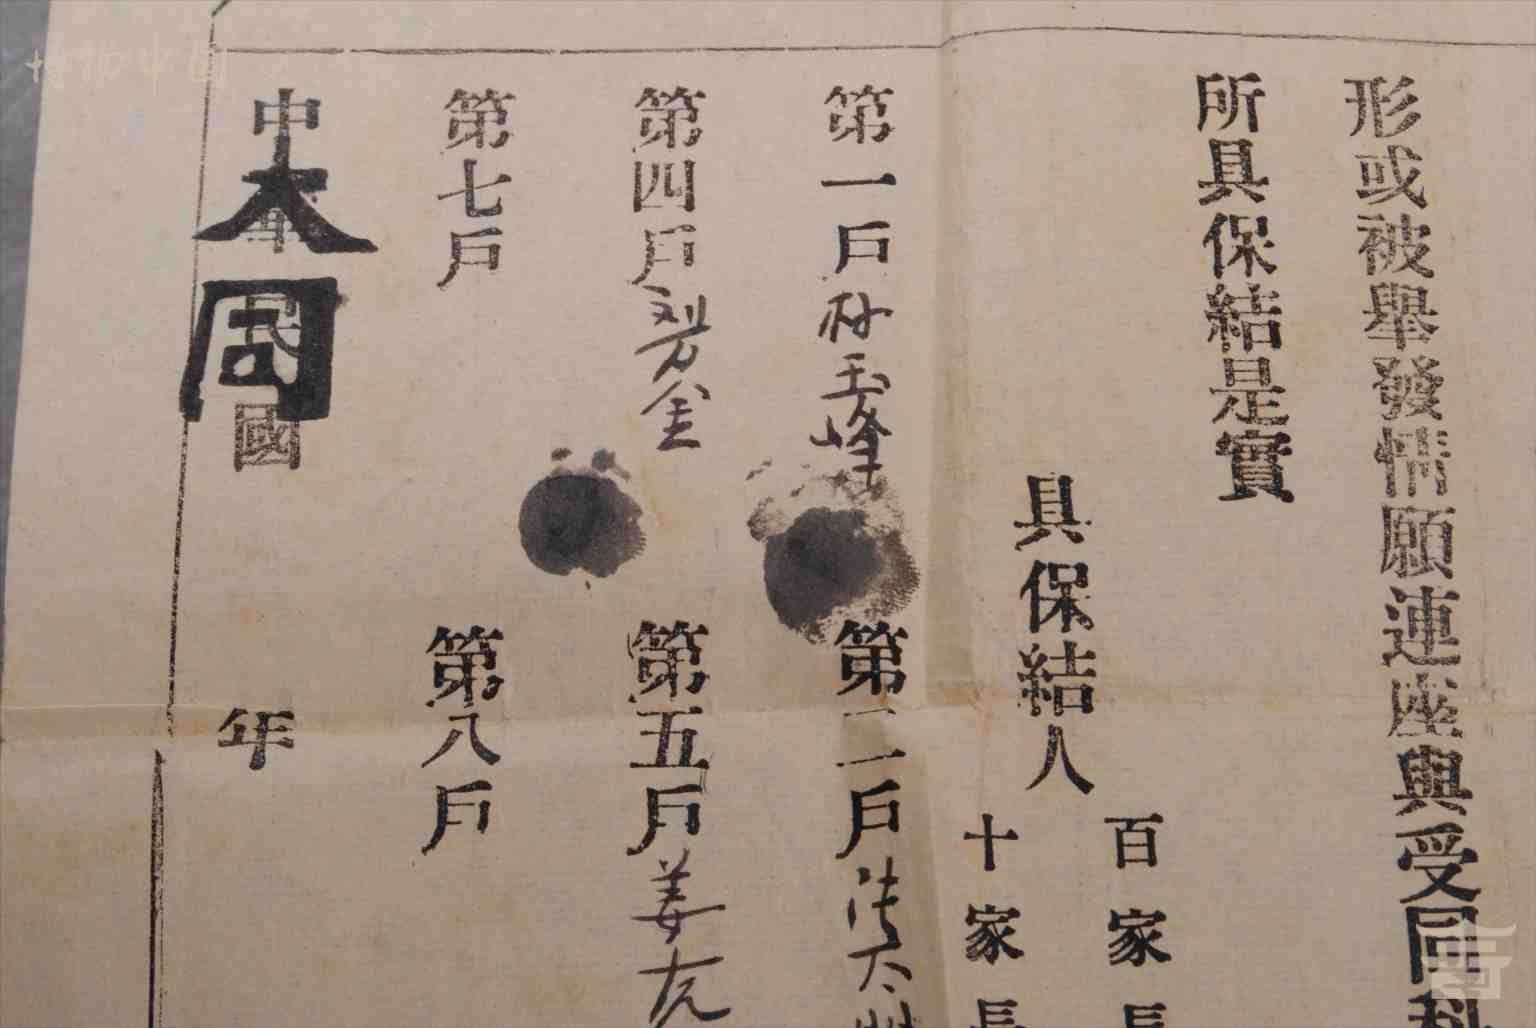 形或被舉發情願連座與受同科
所具保結是實
百家長
具保結人
十家長
第一戶孙玉峰
第二戶
第四戶刘芳金
第五戶姜
第七戶
第八戶
中華民國
大同
年